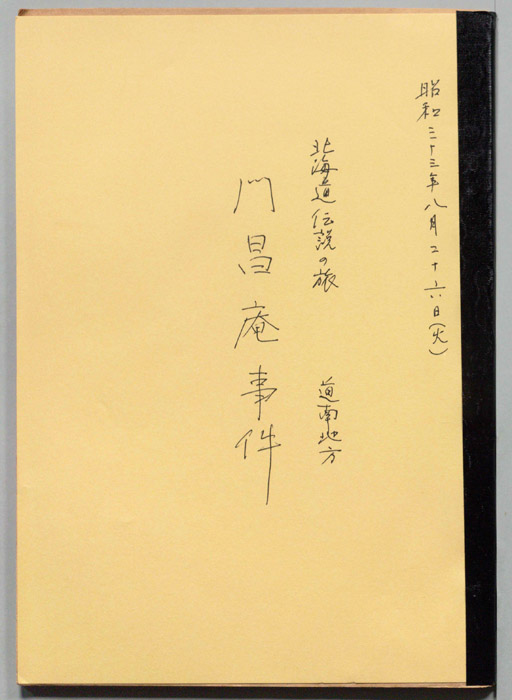 昭和三十三年八月二十六日(火)
北海道伝説の旅　道南地方
門昌庵事件